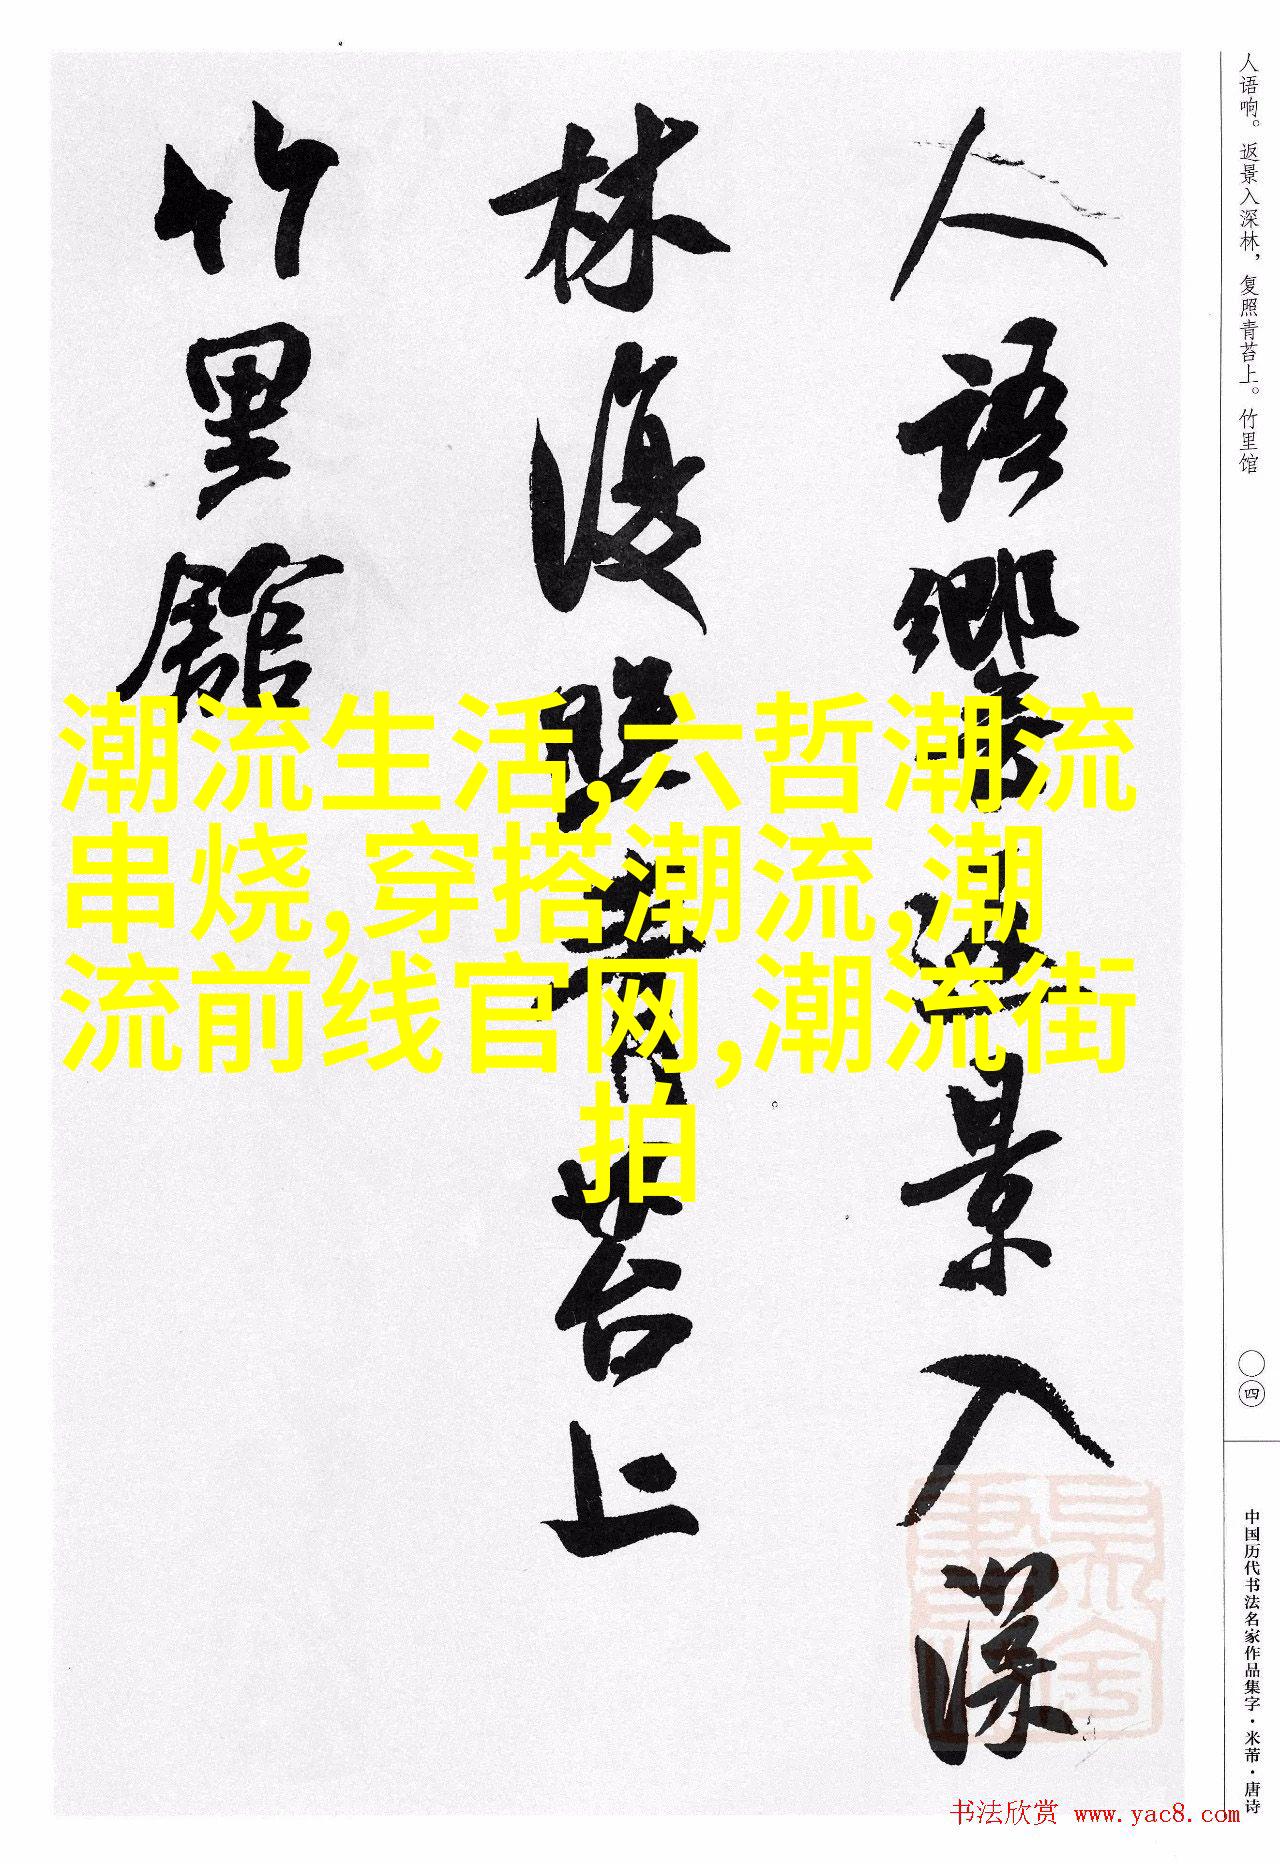 人语响。返景入深林，复照青苔上。竹里馆
人语响返景入深
林复照青苔上
竹里馆
潮流生活,六哲潮流
串烧,穿搭潮流,潮
流前线官网,潮流街
拍
〇四
中国历代书法名家作品集字·米芾·唐诗
书法欣赏 www.yac8.com